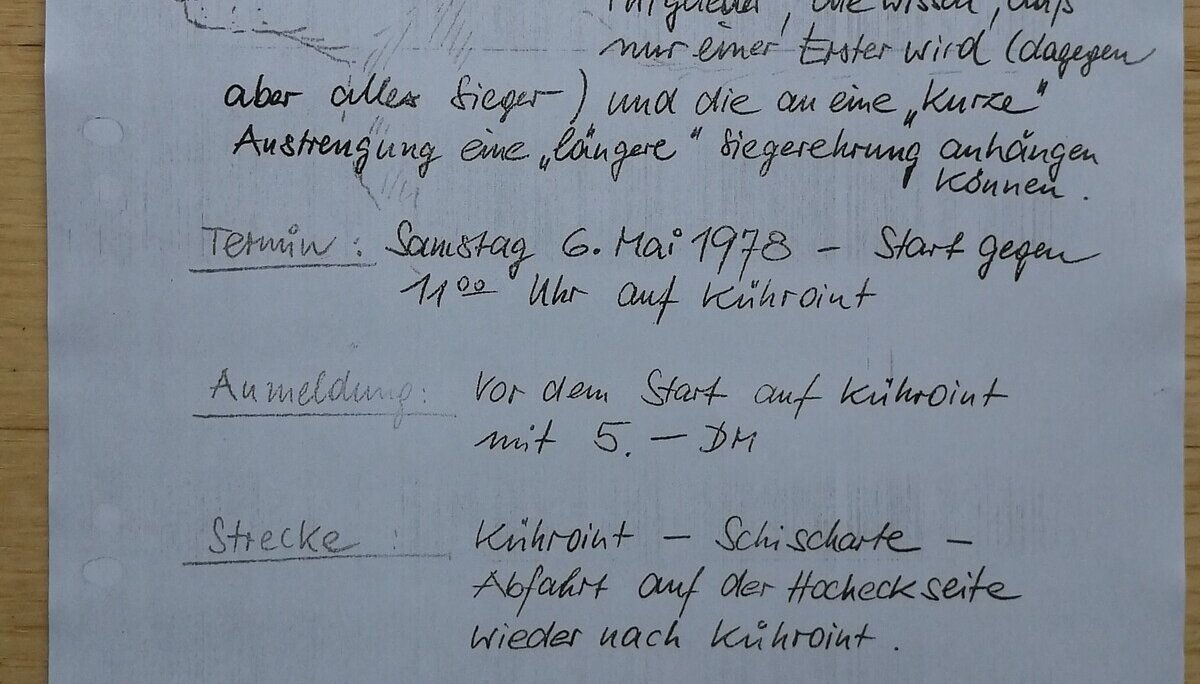 Mitglieder, die wissen, daß
nur einer Erster wird (dagegen
aber alles Sieger-) und die an eine „Kurze"
Anstrengung eine „längere" Siegerehrung anhängen
können.
Termin: Samstag 6. Mai 1978 - Start gegen
11⁰⁰ Uhr auf Kühroint
Anmeldung: Vor dem Start auf Kühroint
mit 5.- DM
Strecke: Kühroint - Schischarte -
Abfahrt auf der Hocheckseite
wieder nach Kühroint.